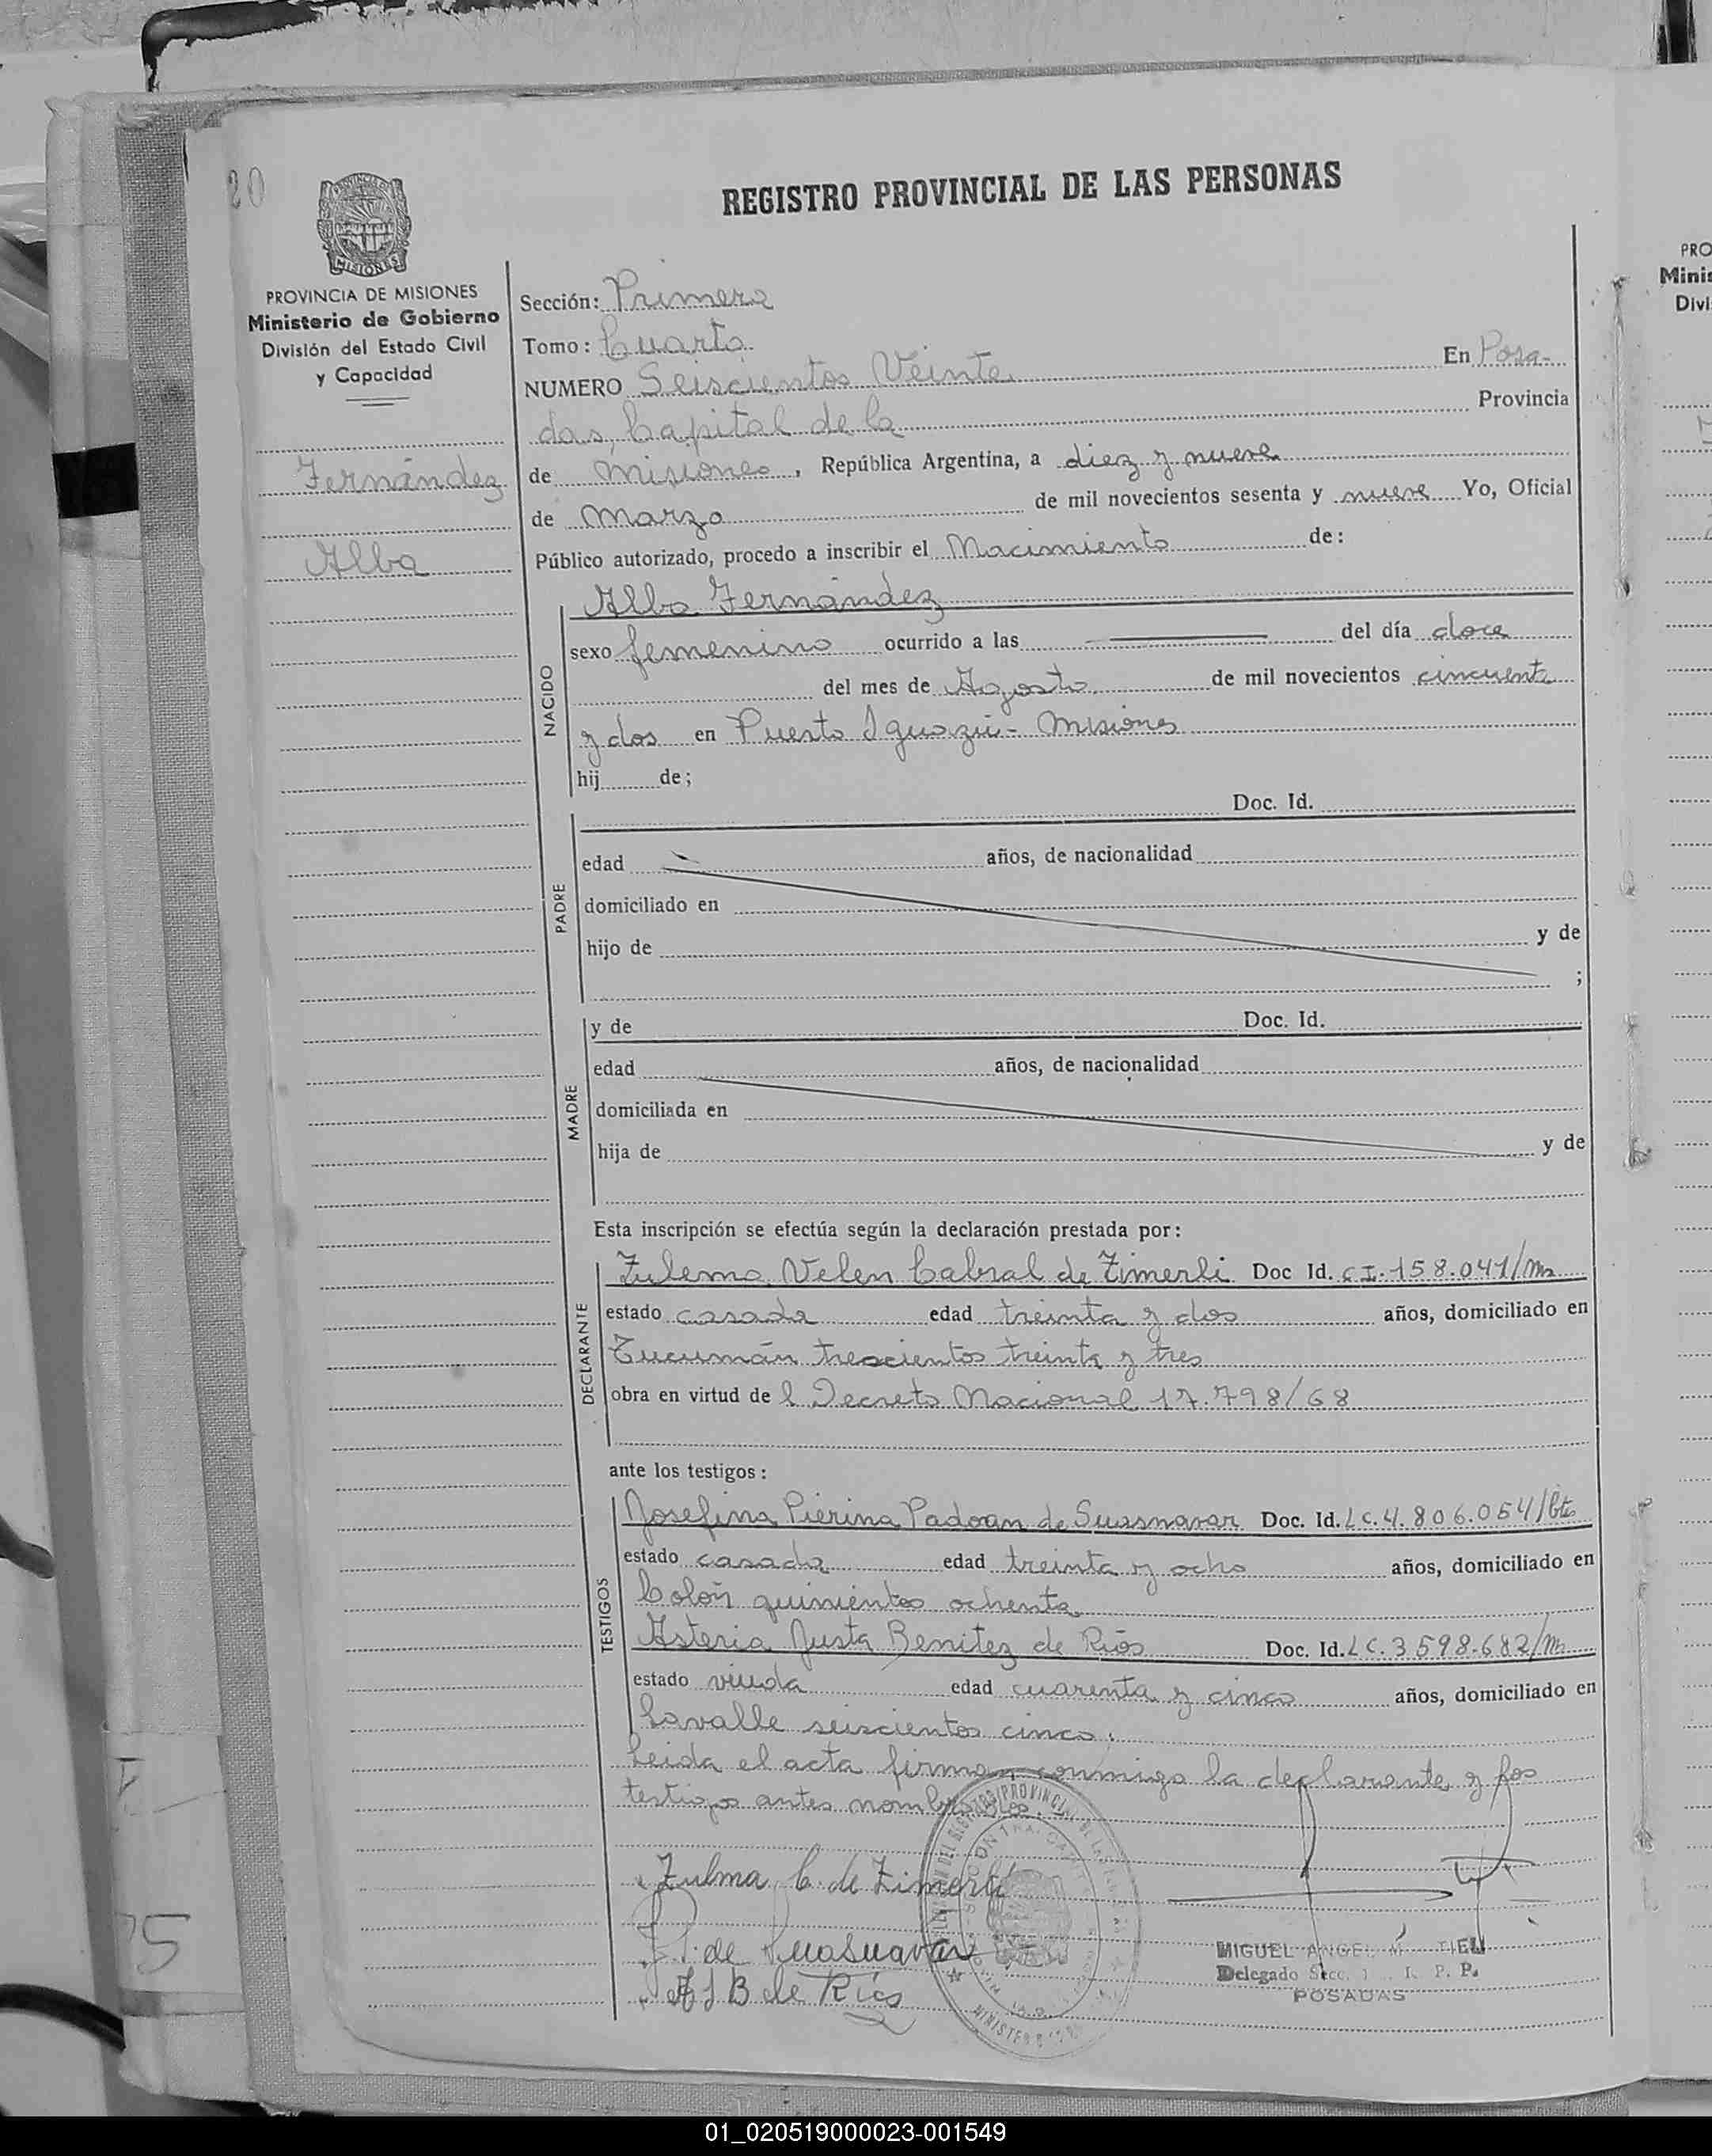 20
REGISTRO PROVINCIAL DE LAS PERSONAS
MISIONES
PROVINCIA DE MISIONES
Ministerio de Gobierno
División del Estado Civil
y Capacidad
Fernández
Alba
Sección: Primera
Tomo: Cuarto
NUMERO Seiscientos Veinte. En Posa-
das, Capital de la Provincia
de Misiones, República Argentina, a diez y nueve
de Marzo de mil novecientos sesenta y nueve Yo, Oficial
Público autorizado, procedo a inscribir el Nacimiento de:
NACIDO
Alba Fernández
sexo femenino ocurrido a las del día doce
del mes de Agosto de mil novecientos cincuenta
y dos en Puerto Iguazú - Misiones
hij de;
PADRE
Doc. Id.
edad años, de nacionalidad
domiciliado en
hijo de y de
;
MADRE
y de Doc. Id.
edad años, de nacionalidad
domiciliada en
hija de y de
Esta inscripción se efectúa según la declaración prestada por:
DECLARANTE
Zulema Velen Cabral de Zimerli Doc Id. CI. 158.041/Ms
estado casada edad treinta y dos años, domiciliado en
Tucumán trescientos treinta y tres
obra en virtud de l Decreto Nacional 17.798/68
ante los testigos:
TESTIGOS
Josefina Pierina Padoan de Suasnavar Doc. Id. LC. 4.806.054/
estado casada edad treinta y ocho años, domiciliado en
Colón quinientos ochenta
Asteria Justa Benitez de Ríos Doc. Id. LC. 3598.682/
estado viuda edad cuarenta y cinco años, domiciliado en
Lavalle seiscientos cinco.
Leida el acta firman conmigo la declarante y los
testigos antes nombrados.
Zulma C. de Zimerli
de Suasnavar
A J B de Ríos
MIGUEL ANGEL
Delegado Secc.
POSADAS
PRO
Minis
Divi
01_020519000023-001549